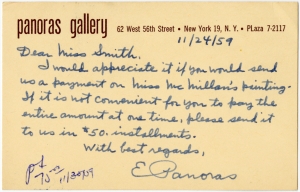 panoras gallery
62 West 56th Street • New York 19, N. Y. • PLaza 7-2117
11/24/59
Dear Miss Smith,
I would appreciate it if you would send
us a payment on Miss Mc Millan's painting.
If it is not convenient for you to pay the
entire amount at one time, please send it
to us in $50. installments.
With best regards,
E Panoras
pd
11/30/59